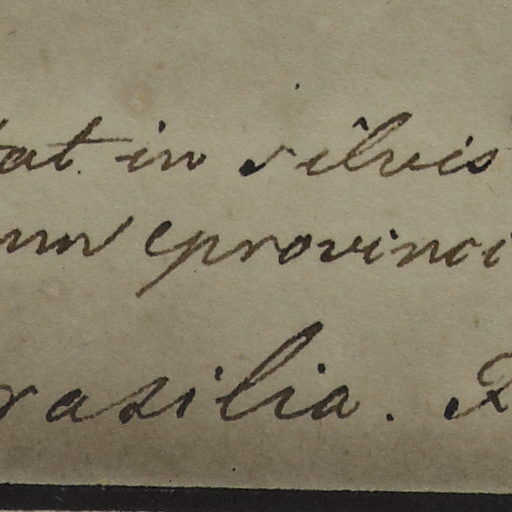 tat in silvis
provinci
rasilia. R